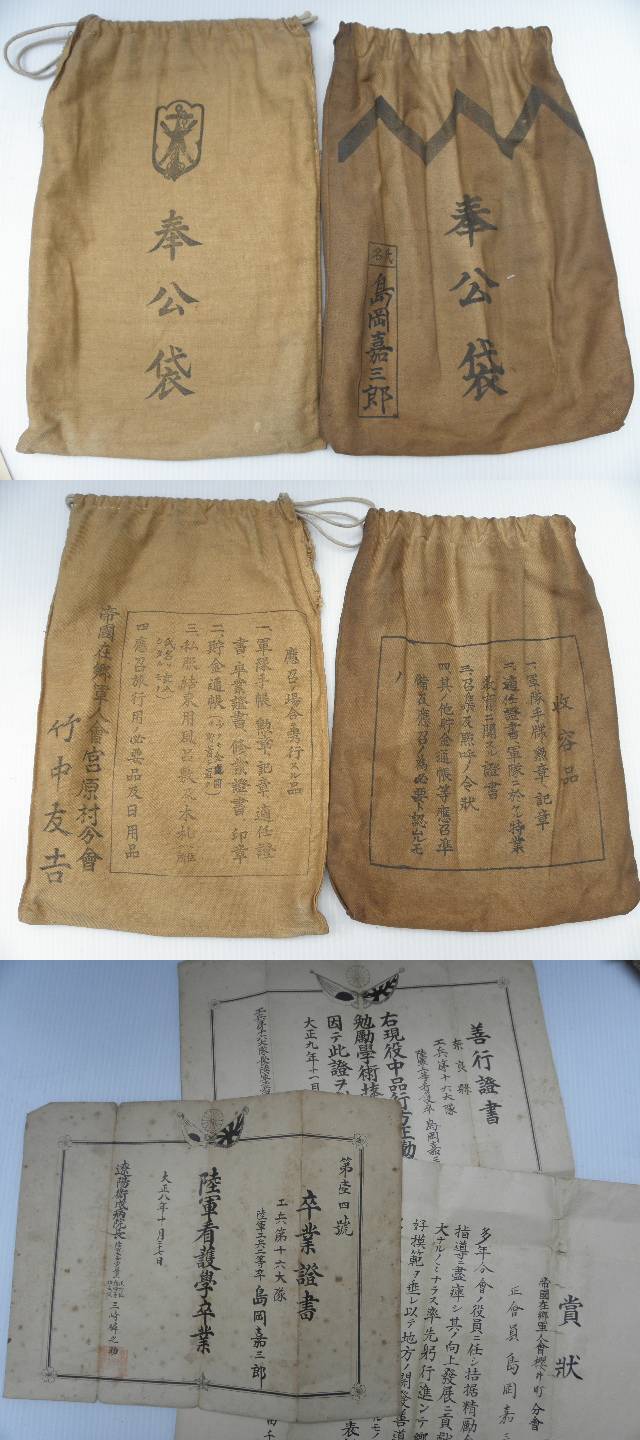 奉公袋
奉公袋
氏名
島岡嘉三郎
應召ノ場合ニ携行スル品
一、軍隊手帳、勲章、記章、適任證
書、卒業證書、修業證書、印章
二、貯金通帳
三、私服結束用風呂敷及木札、細
四、應召旅行用必要品及日用品
帝國在郷軍人會宮原村分會
竹中友吉
收容品
一、軍隊手牒勲章記章
二、適任證書軍隊ニ於ケル特業
教育ニ關スル證書
三、召集及點呼ノ令狀
四、其ノ他貯金通帳等應召準
備及應召ノ爲必要ト認ムルモ
ノ
善行證書
奈良縣
工兵第十六大隊
島岡嘉三
右現役中品行方正勤
勉勵學術技
因テ此證ヲ
大正九年十一月
第壹四號
卒業證書
工兵第十六大隊
陸軍工兵二等卒 島岡嘉三郎
陸軍看護學卒業
大正八年十月三十日
遼陽衛戍病院長
賞狀
帝國在郷軍人會櫻井町分會
正會員 島岡嘉三
多年分會ノ役員ニ任シ拮据精勵
指導ニ盡瘁シ其ノ向上發展ニ貢獻
大ナルノミナラス率先躬行進ンテ郷
好模範ヲ垂レ以テ地方ノ開發善導